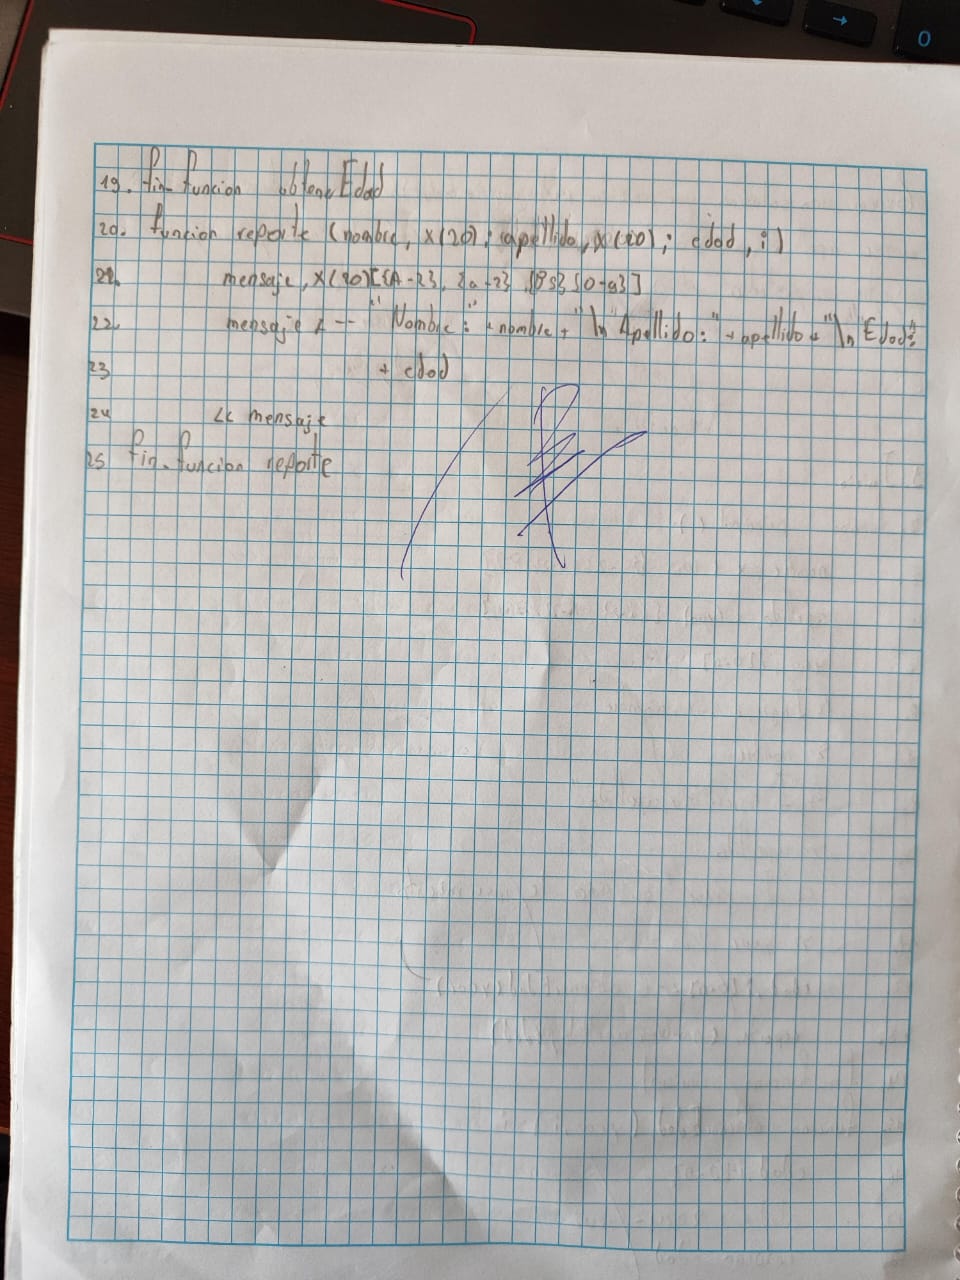 19. fin_funcion obtenerEdad
20. funcion reporte (nombre, x(20); apellido, x(20); edad, i)
21. mensaje, x(20)[{A-z}, {a-z} {Bs} {0-9}]
22. mensaje <-- "Nombre:" + nombre + "\n Apellido:" + apellido + "\n Edad:"
23 + edad
24 << mensaje
25 fin_funcion reporte
→
0